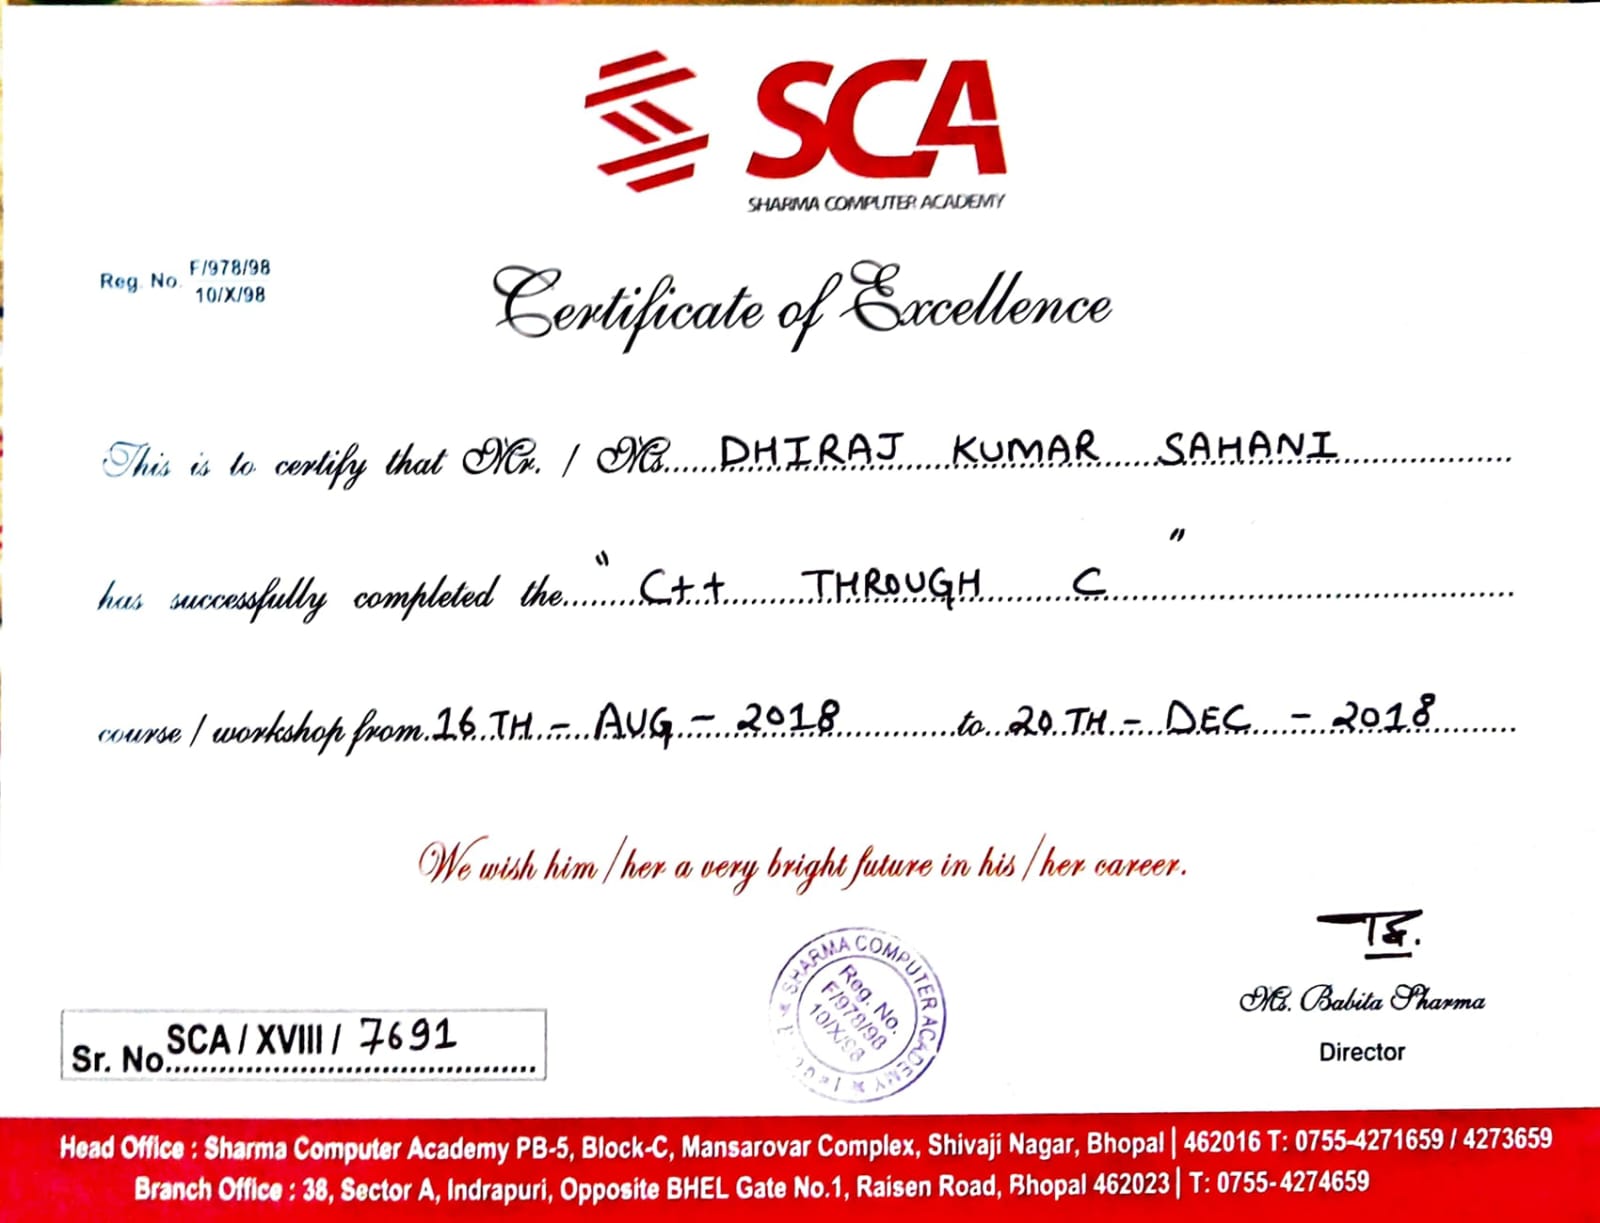 SCA
SHARMA COMPUTER ACADEMY
Reg. No. F/978/98
10/X/98
Certificate of Excellence
This is to certify that Mr. / Ms. DHIRAJ KUMAR SAHANI
has successfully completed the " C++ THROUGH C "
course / workshop from 16 TH - AUG - 2018 to 20 TH - DEC - 2018
We wish him / her a very bright future in his / her career.
SHARMA COMPUTER ACADEMY
Reg. No.
F/978/98
10/X/98
Ms. Babita Sharma
Director
Sr. No. SCA / XVIII / 7691
Head Office : Sharma Computer Academy PB-5, Block-C, Mansarovar Complex, Shivaji Nagar, Bhopal | 462016 T: 0755-4271659 / 4273659
Branch Office : 38, Sector A, Indrapuri, Opposite BHEL Gate No.1, Raisen Road, Bhopal 462023 | T: 0755-4274659